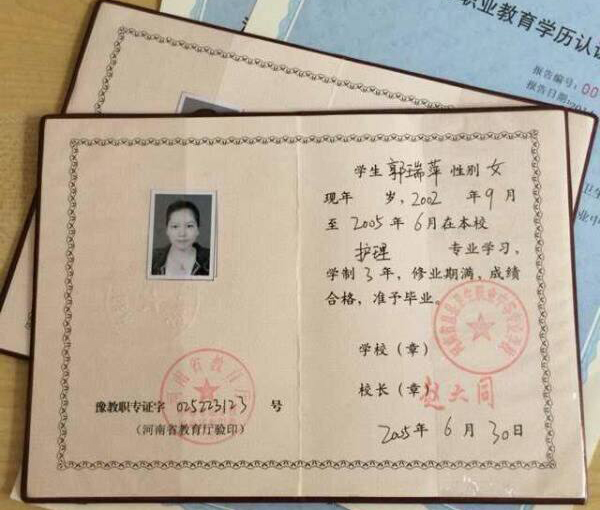 职业教育学历认证
报告编号：00
报告日期：
学生 郭瑞萍 性别 女
现年 岁，2002 年 9 月
至 2005 年 6 月在本校
护理 专业学习，
学制 3 年，修业期满，成绩
合格，准予毕业。
学校（章）
校长（章）赵大同
2005 年 6 月 30 日
河南省教育厅
豫教职专证字 025223123 号
（河南省教育厅验印）